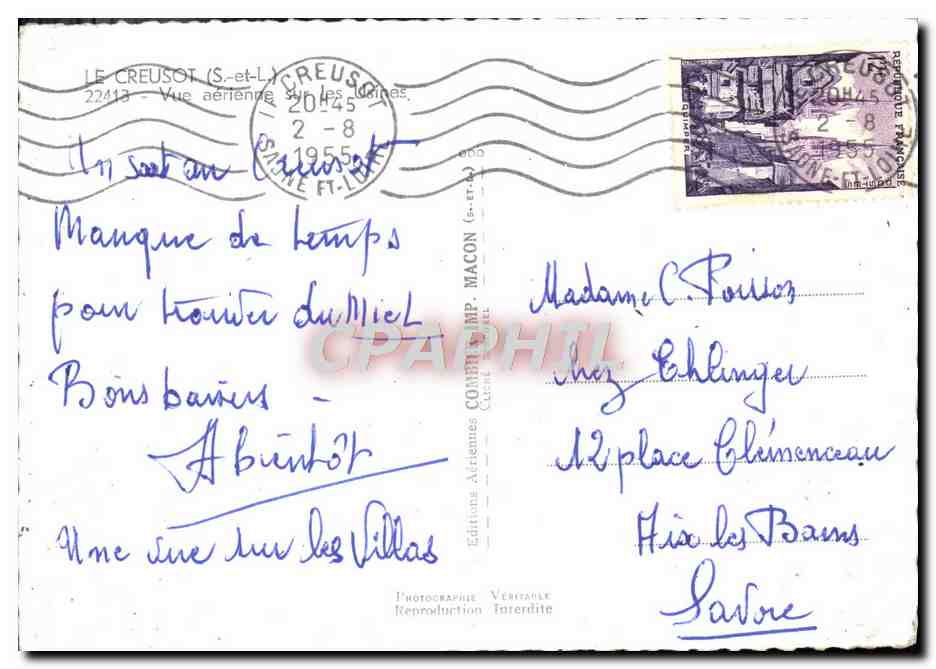 LE CREUSOT (S.-et-L.)
22413 - Vue aérienne sur les Usines
LE CREUSOT
20H45
2 -8
1955
SAONE-ET-LOIRE
LE CREUSOT
20H45
2 -8
1955
SAONE-ET-LOIRE
REPUBLIQUE FRANÇAISE
12F
QUIMPER
POSTES
Un saut au Creusot
Manque de temps
pour trouver du Miel
Bons baisers -
A bientôt
Une vue sur les Villas
Editions Aériennes COMBIER IMP. MACON (S.-et-L.)
PHOTOGRAPHIE VÉRITABLE
Reproduction Interdite
Madame C. Poisson
chez Ehlinger
12 place Clémenceau
Aix les Bains
Savoie
CPAPHIL